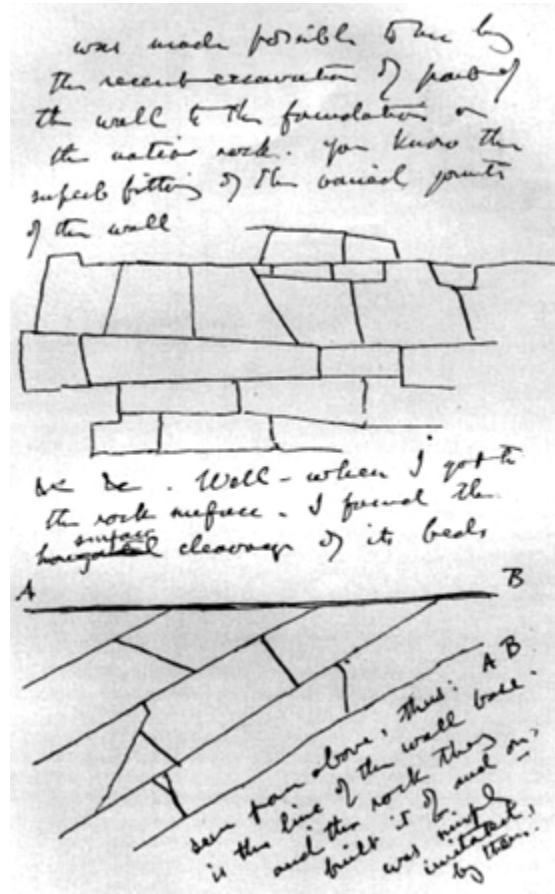 was made possible to me by
the recent excavation of part of
the wall to the foundation on
the native rock. You know the
superb fitting of the varied joints
of the wall
&c &c. Well - when I got to
the rock surface - I found the
surface
cleavage of its beds
A B
seen from above, thus: A B
is the line of the wall base.
and the rock they
built it of and on,
was simply
imitated
by them.